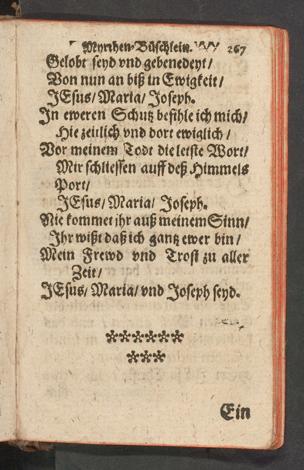 Myrrhen-Büschlein. 267
Gelobt seyd vnd gebenedeyt/
Von nun an biß in Ewigkeit/
JEsus/ Maria/ Joseph.
In eweren Schutz befihle ich mich/
Hie zeitlich vnd dort ewiglich/
Vor meinem Tode die letste Wort/
Mir schliessen auff deß Himmels
Port/
JEsus/ Maria/ Joseph.
Nie kommet jhr auß meinem Sinn/
Jhr wißt daß ich gantz ewer bin/
Mein Frewd vnd Trost zu aller
Zeit/
JEsus/ Maria/ vnd Joseph seyd.
******
***
Ein